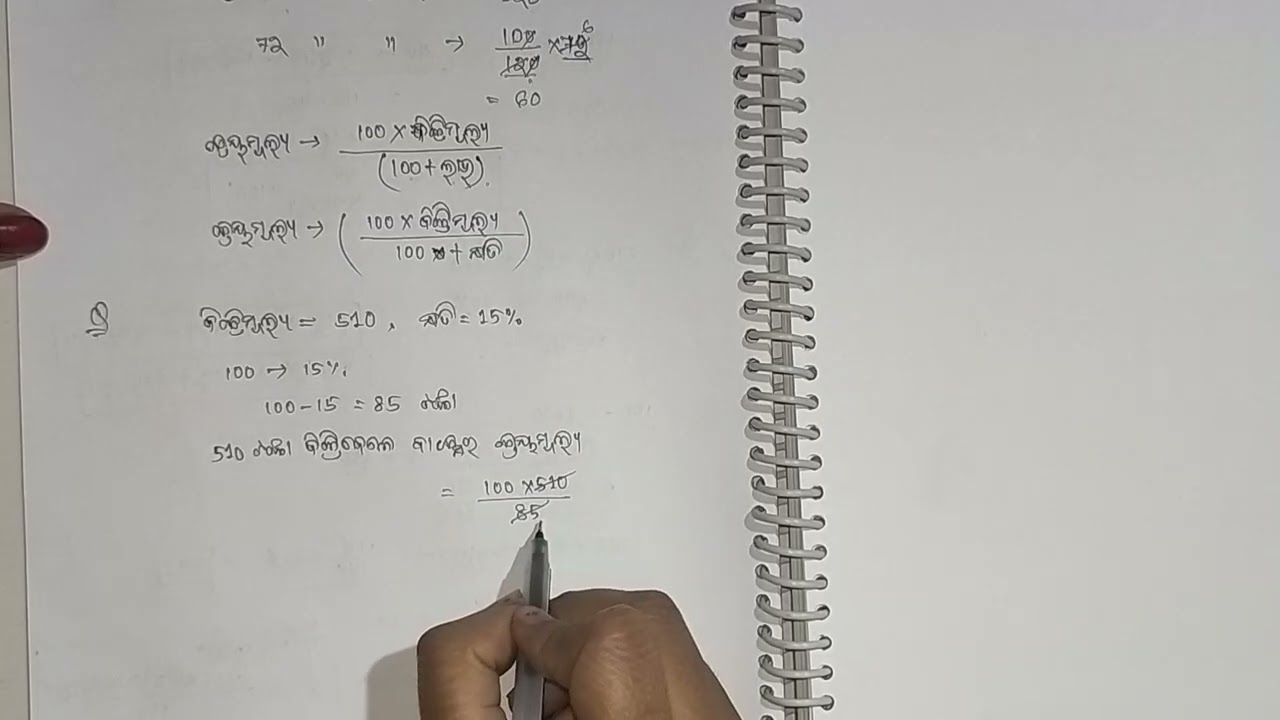 72 " " → 100/120 × 72 6
= 60
କ୍ରୟମୂଲ୍ୟ → 100 × ବିକ୍ରିମୂଲ୍ୟ / (100 + ଲାଭ)
କ୍ରୟମୂଲ୍ୟ → ( 100 × ବିକ୍ରିମୂଲ୍ୟ / 100 + କ୍ଷତି )
Q ବିକ୍ରିମୂଲ୍ୟ = 510, କ୍ଷତି = 15%
100 → 15%
100 - 15 = 85 ଟଙ୍କା
510 ଟଙ୍କା ବିକ୍ରିକେଲେ କ୍ରୟମୂଲ୍ୟ
= 100 × 510 / 85